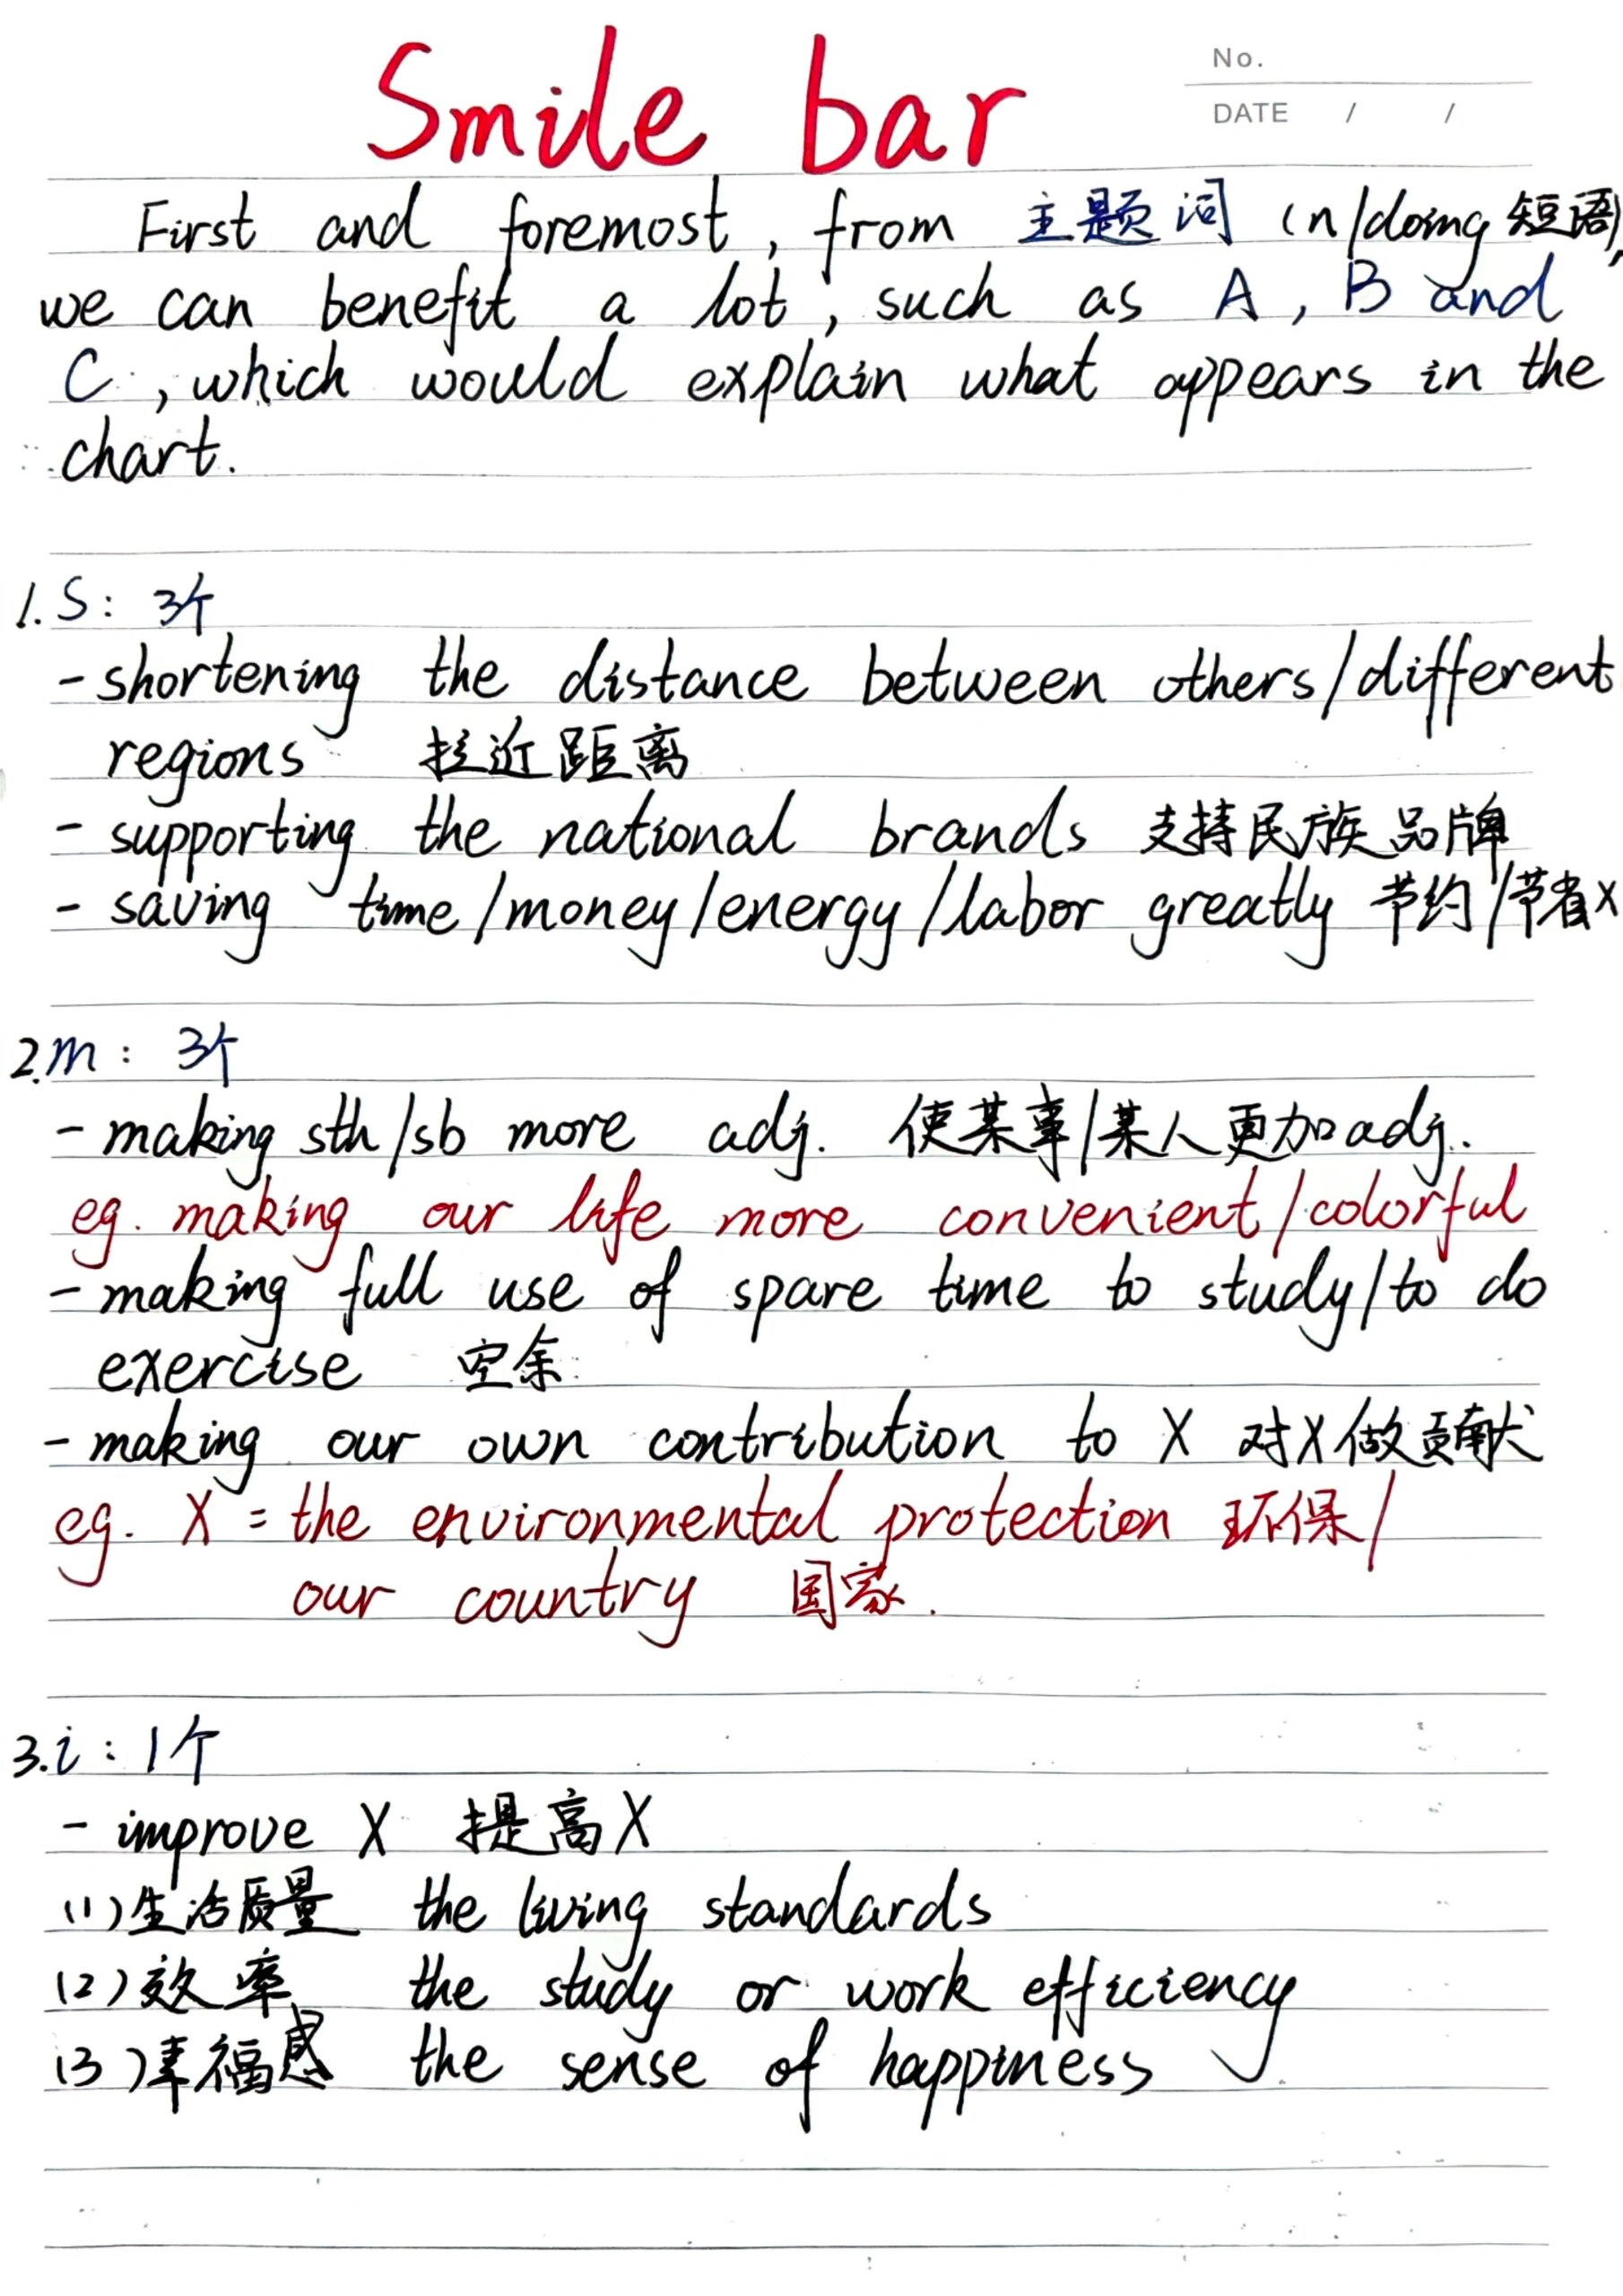 Smile bar
No.
DATE / /
First and foremost, from 主题词 (n/doing 短语),
we can benefit a lot, such as A, B and
C, which would explain what appears in the
chart.
1. S: 3个
- shortening the distance between others/different
regions 拉近距离
- supporting the national brands 支持民族品牌
- saving time/money/energy/labor greatly 节约/节省X
2. m: 3个
- making sth/sb more adj. 使某事/某人更加adj.
eg. making our life more convenient/colorful
- making full use of spare time to study/to do
exercise 空余
- making our own contribution to X 对X做贡献
eg. X = the environmental protection 环保/
our country 国家.
3. i: 1个
- improve X 提高X
(1) 生活质量 the living standards
(2) 效率 the study or work efficiency
(3) 幸福感 the sense of happiness